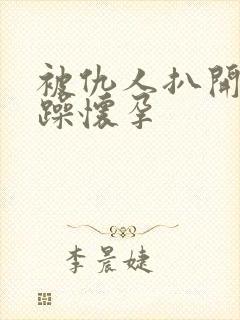 被仇人扒開
躁懷孕
李晨婕